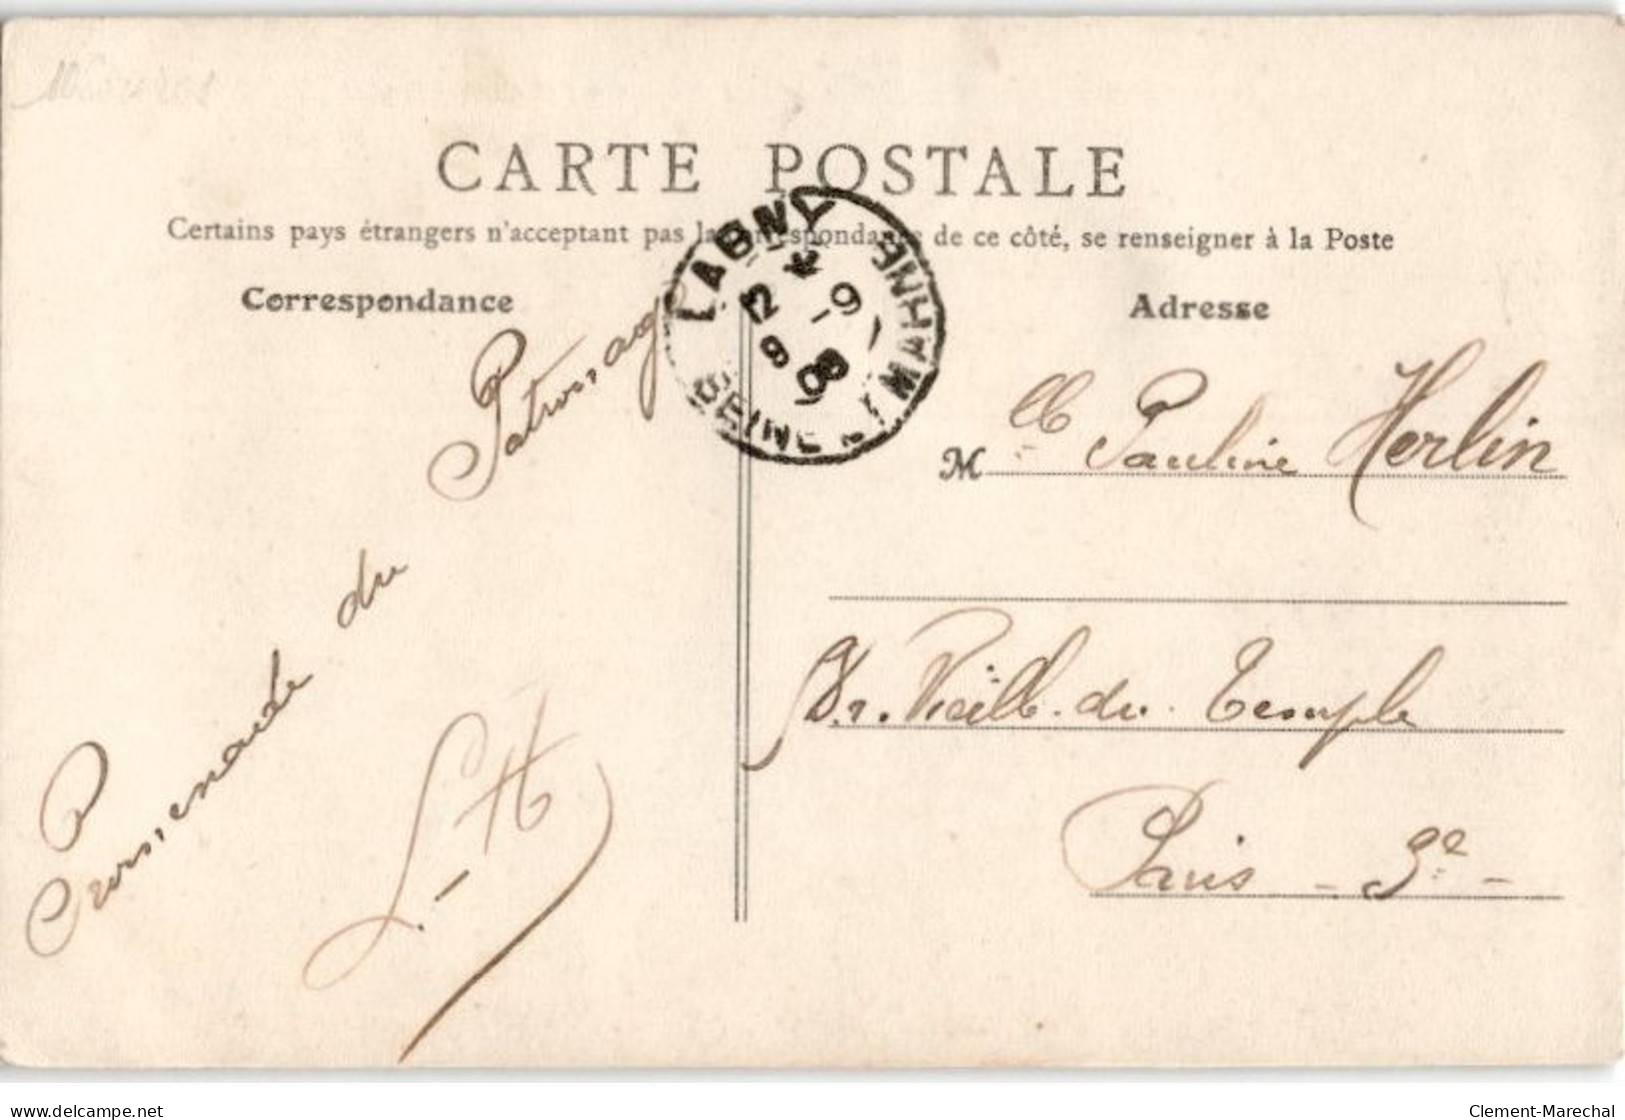 CARTE POSTALE
Certains pays étrangers n'acceptant pas la correspondance de ce côté, se renseigner à la Poste
Correspondance
Adresse
LAGNY
SEINE ET MARNE
12 9
8 08
Promenade du Patronage
L. H
M lle Pauline Herlin
r. Vieille du Temple
Paris - 3e -
delcampe.net
Clement-Marechal